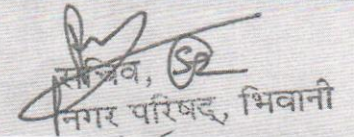 सचिव,
नगर परिषद्, भिवानी